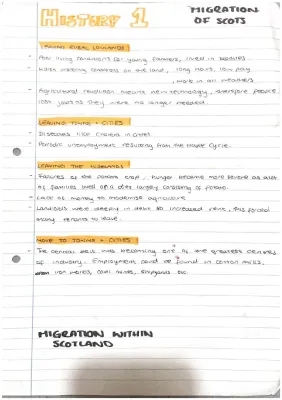 HISTORY 1
MIGRATION
OF SCOTS
LEAVING RURAL LOWLANDS
- Poor living conditions for young farmers, lived in bothies
- Harsh working conditions on the land, long hours, low pay
, work in all weathers
- Agricultural revolution means new technology, therefore people
lost jobs as they were no longer needed.
LEAVING TOWNS + CITIES
- Diseases like cholera in cities
- Periodic unemployment resulting from the Trade Cycle.
LEAVING THE HIGHLANDS
- Failures of the potato crop, hunger became more severe as
of families lived off a diet largely consisting of potato.
- Lack of money to modernise agriculture
- Landlords were heavily in debt so increased rent, this forced
many tenants to leave.
MOVE TO TOWNS + CITIES
- The central belt was becoming one of the greatest centres
of industry. Employment could be found in cotton mills,
iron works, coal mines, shipyards etc.
MIGRATION WITHIN
SCOTLAND